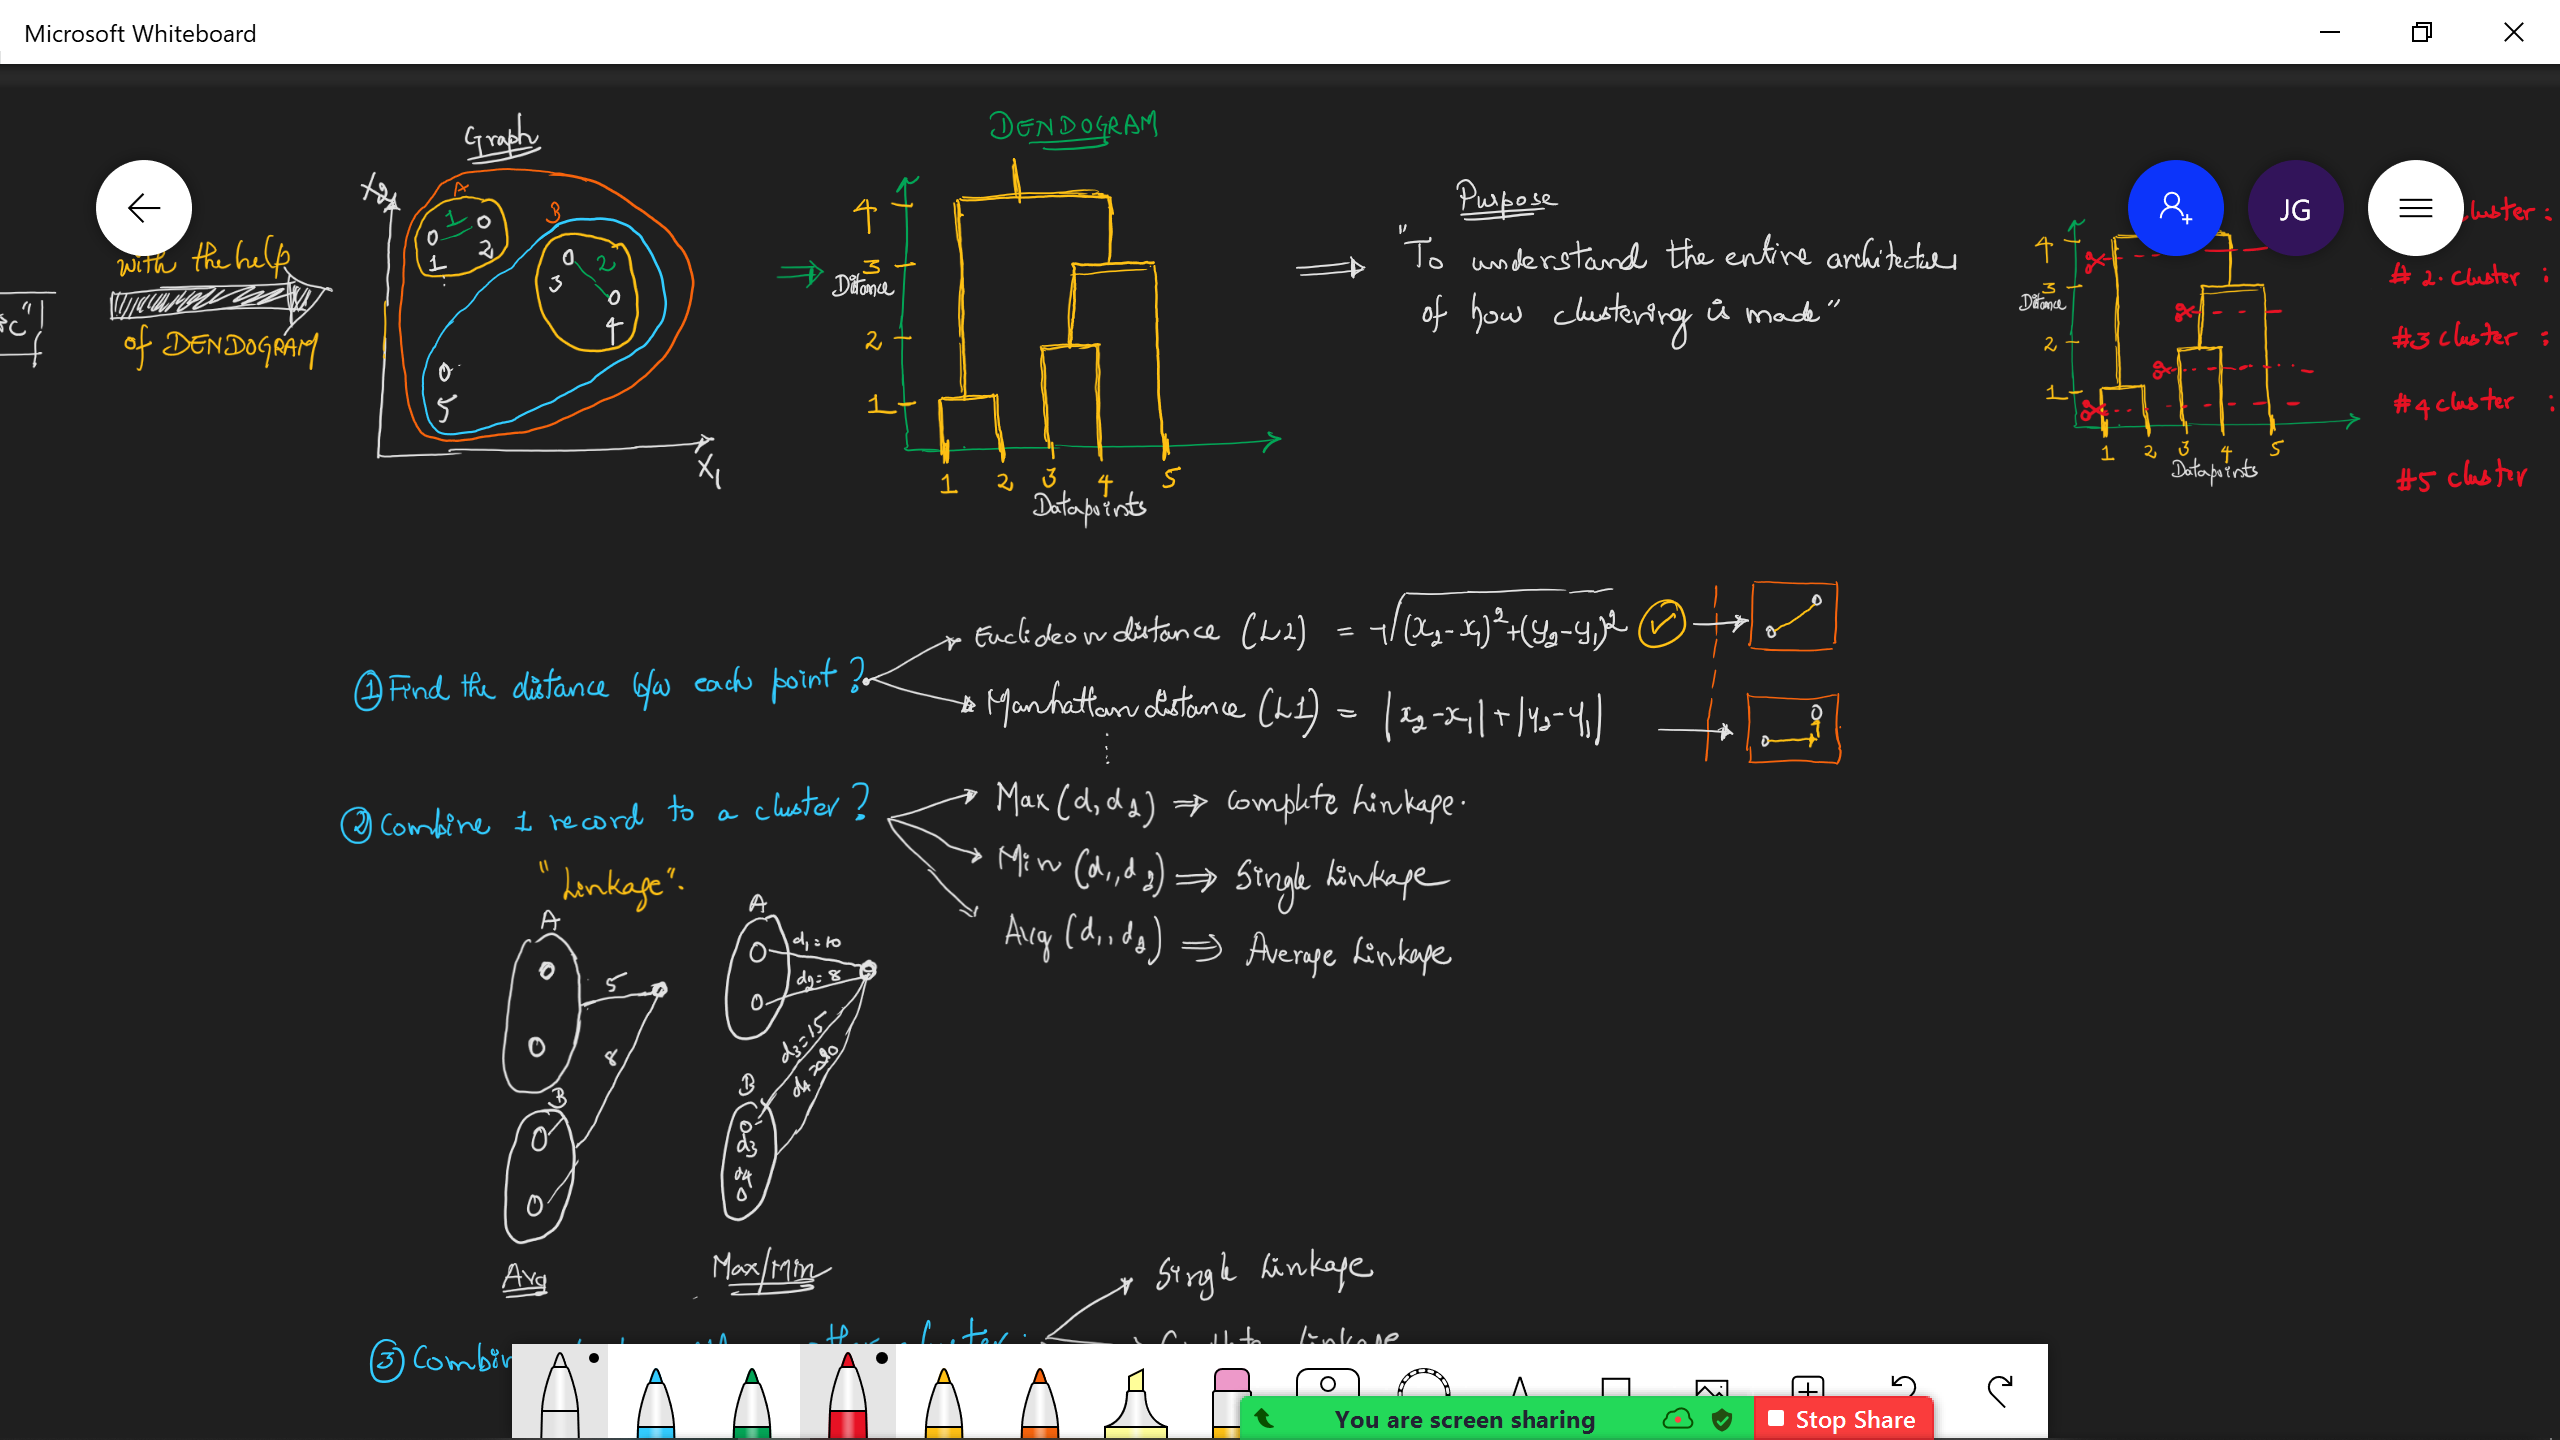 Microsoft Whiteboard
Graph
X2
A
B
1
1
2
2
3
4
5
X1
with the help
of DENDOGRAM
DENDOGRAM
4
3
Distance
2
1
1 2 3 4 5
Datapoints
Purpose
"To understand the entire architecture
of how clustering is made"
JG
4
3
Distance
2
1
1 2 3 4 5
Datapoints
cluster :
# 2. cluster :
#3 cluster :
#4 cluster :
#5 cluster
① Find the distance b/w each point ?
Euclidean distance (L2) = √(x2-x1)²+(y2-y1)²
Manhattan distance (L1) = |x2-x1| + |y2-y1|
② Combine 1 record to a cluster ?
Max (d, d2) ⇒ Complete Linkage.
Min (d1, d2) ⇒ Single Linkage
Avg (d1, d2) ⇒ Average Linkage
"Linkage".
A
5
8
B
Avg
A
d1=10
d2=8
d3=15
B
d3
Max/Min
Single Linkage
Linkage
③
You are screen sharing
Stop Share